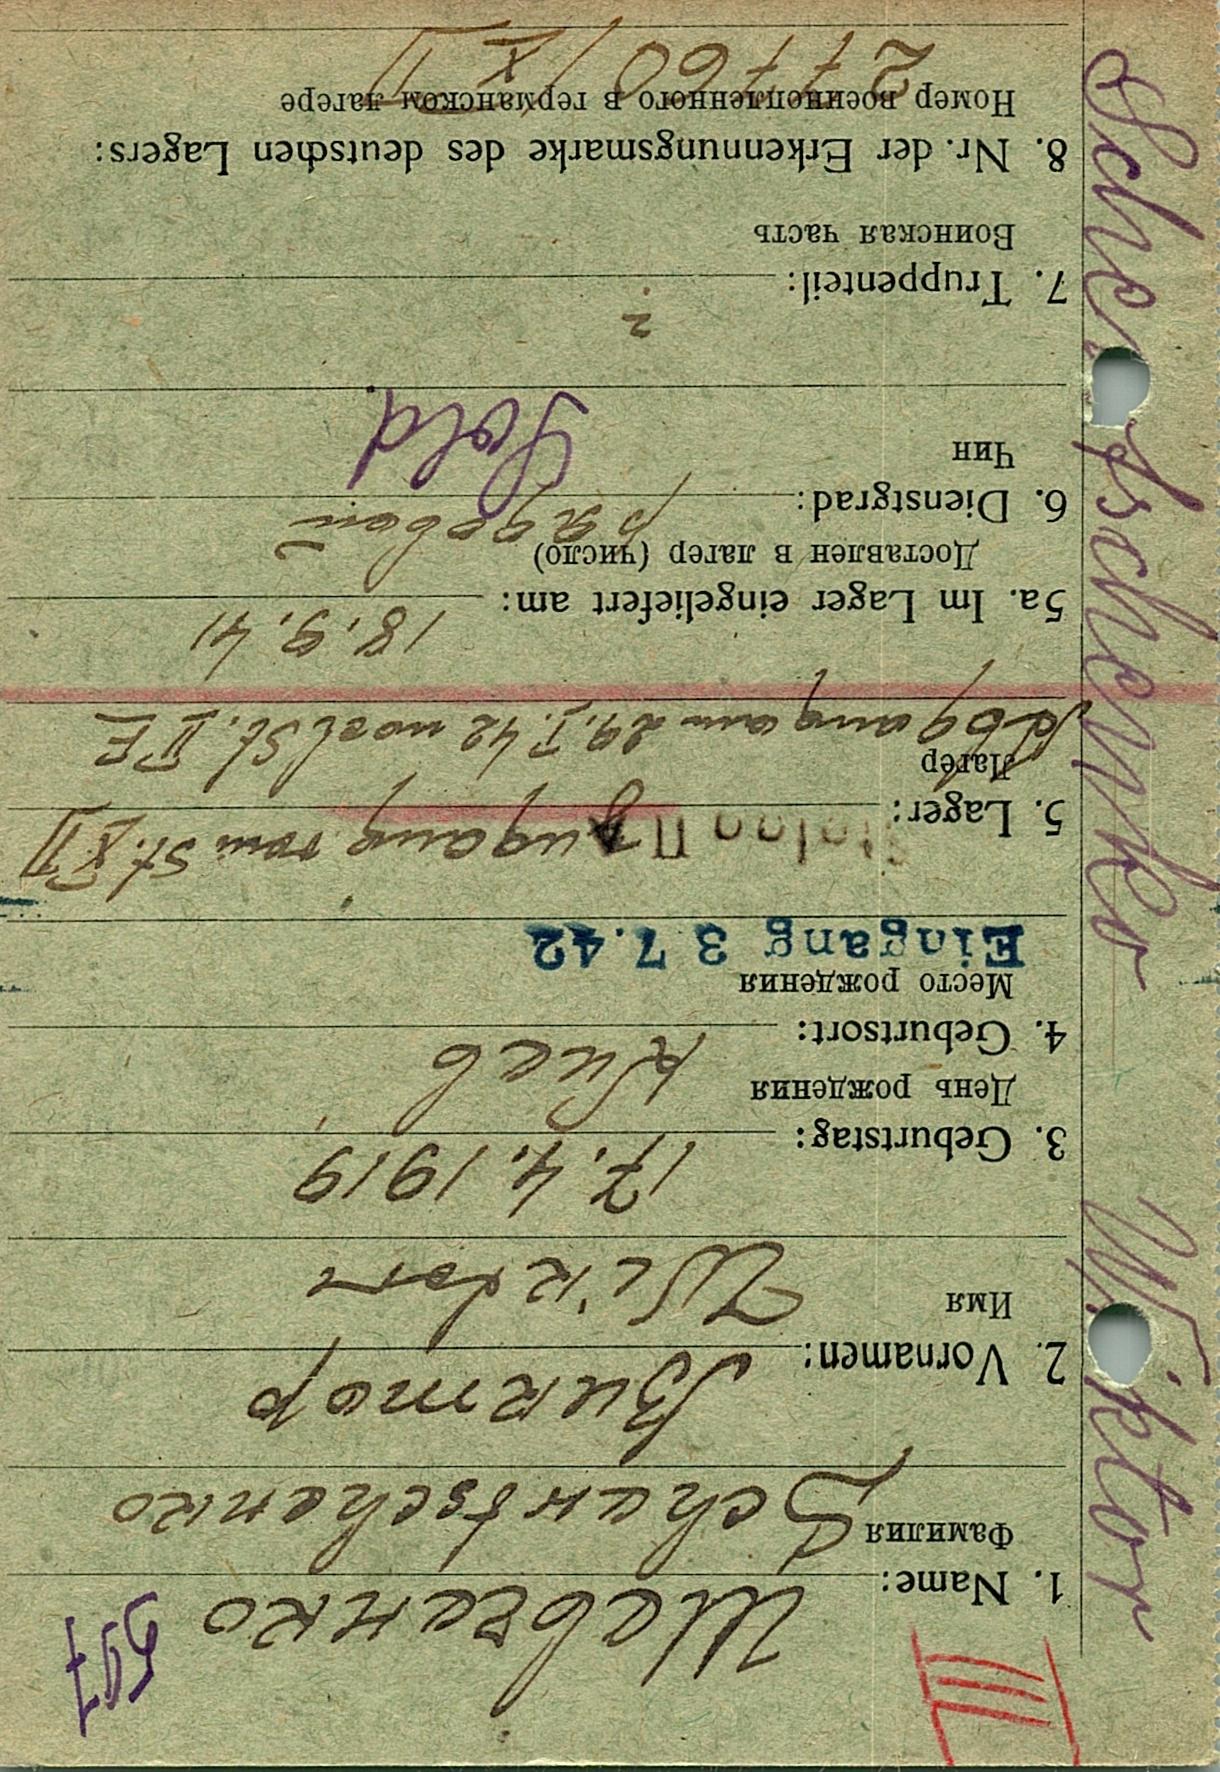 III
507
Шевченко
1. Name:
Фамилия
Schewtschenko
Виктор
2. Vornamen:
Имя
Wiktor
17.4.1919
3. Geburtstag:
День рождения
Киев
4. Geburtsort:
Место рождения
Eingang 3 7.42
Zugang vom St. X D
5. Lager:
Лагер
Abgang am 29.I.42 nach St. II E
18.9.41
5a. Im Lager eingeliefert am:
Доставлен в лагер (число)
рядовой
6. Dienstgrad:
Sold.
Чин
?
7. Truppenteil:
Воинская часть
8. Nr. der Erkennungsmarke des deutschen Lagers:
Номер военнопленного в германском лагере
27760/X D
Wiktor